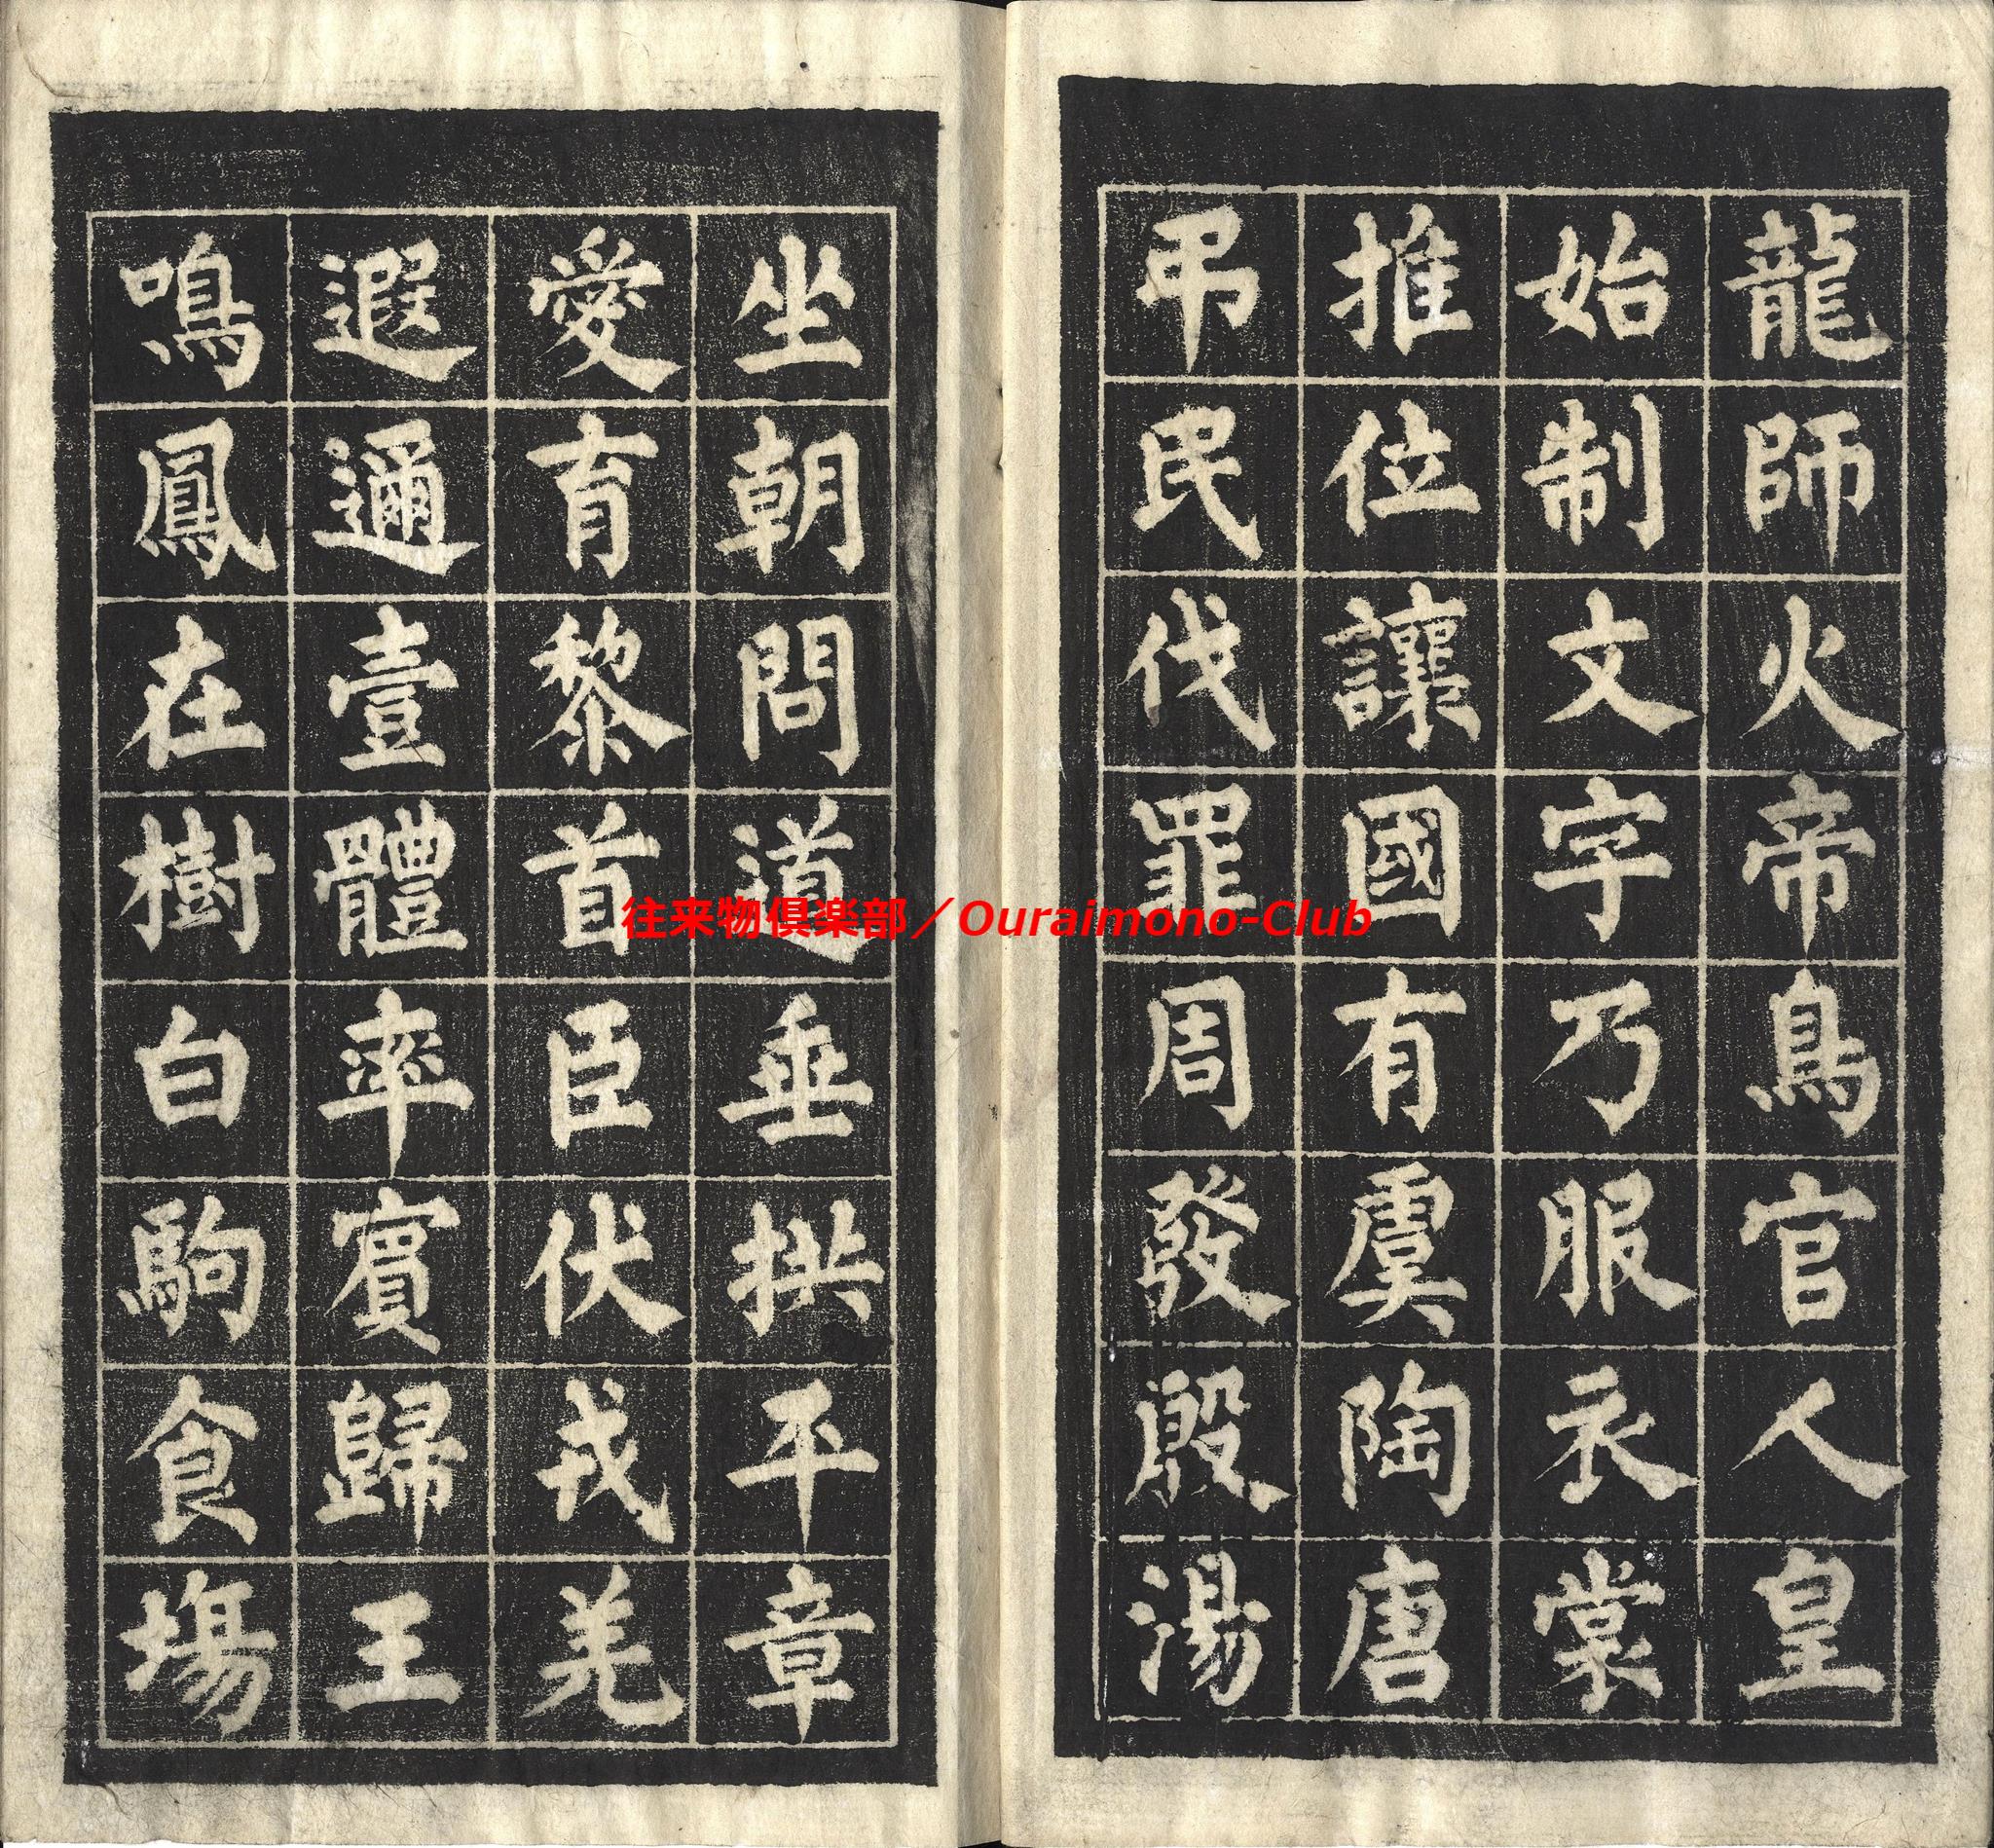 龍師火帝鳥官人皇
始制文字乃服衣裳
推位讓國有虞陶唐
弔民伐罪周發殷湯
坐朝問道垂拱平章
愛育黎首臣伏戎羌
遐邇壹體率賓歸王
鳴鳳在樹白駒食場
往来物倶楽部／Ouraimono-Club